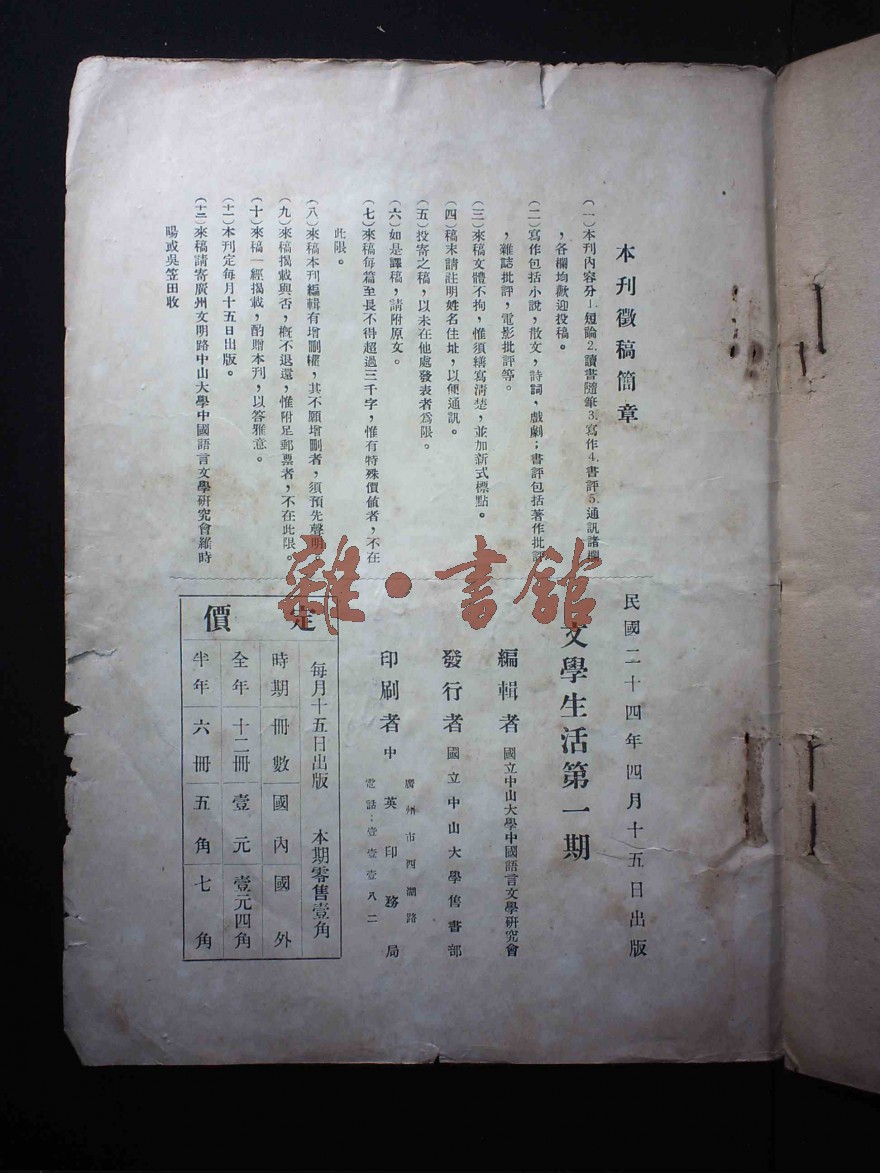 本刊徵稿簡章
(一)本刊內容分1.短論2.讀書隨筆3.寫作4.書評5.通訊諸欄
，各欄均歡迎投稿。
(二)寫作包括小說，散文，詩詞，戲劇；書評包括著作批評
，雜誌批評，電影批評等。
(三)來稿文體不拘，惟須繕寫清楚，並加新式標點。
(四)稿末請註明姓名住址，以便通訊。
(五)投寄之稿，以未在他處發表者爲限。
(六)如是譯稿，請附原文。
(七)來稿每篇至長不得超過三千字，惟有特殊價値者，不在
此限。
(八)來稿本刊編輯有增刪權，其不願增刪者，須預先聲明。
(九)來稿揭載與否，槪不退還，惟附足郵票者，不在此限。
(十)來稿一經揭載，酌贈本刊，以答雅意。
(十一)本刊定每月十五日出版。
(十二)來稿請寄廣州文明路中山大學中國語言文學硏究會羅時
暘或吳笠田收
民國二十四年四月十五日出版
文學生活第一期
編輯者 國立中山大學中國語言文學硏究會
發行者 國立中山大學售書部
印刷者 中英印務局
廣州市西湖路
電話：壹壹壹八二
定價
每月十五日出版 本期零售壹角
時期 冊數 國內 國外
全年 十二冊 壹元 壹元四角
半年 六冊 五角 七角
雜·書館